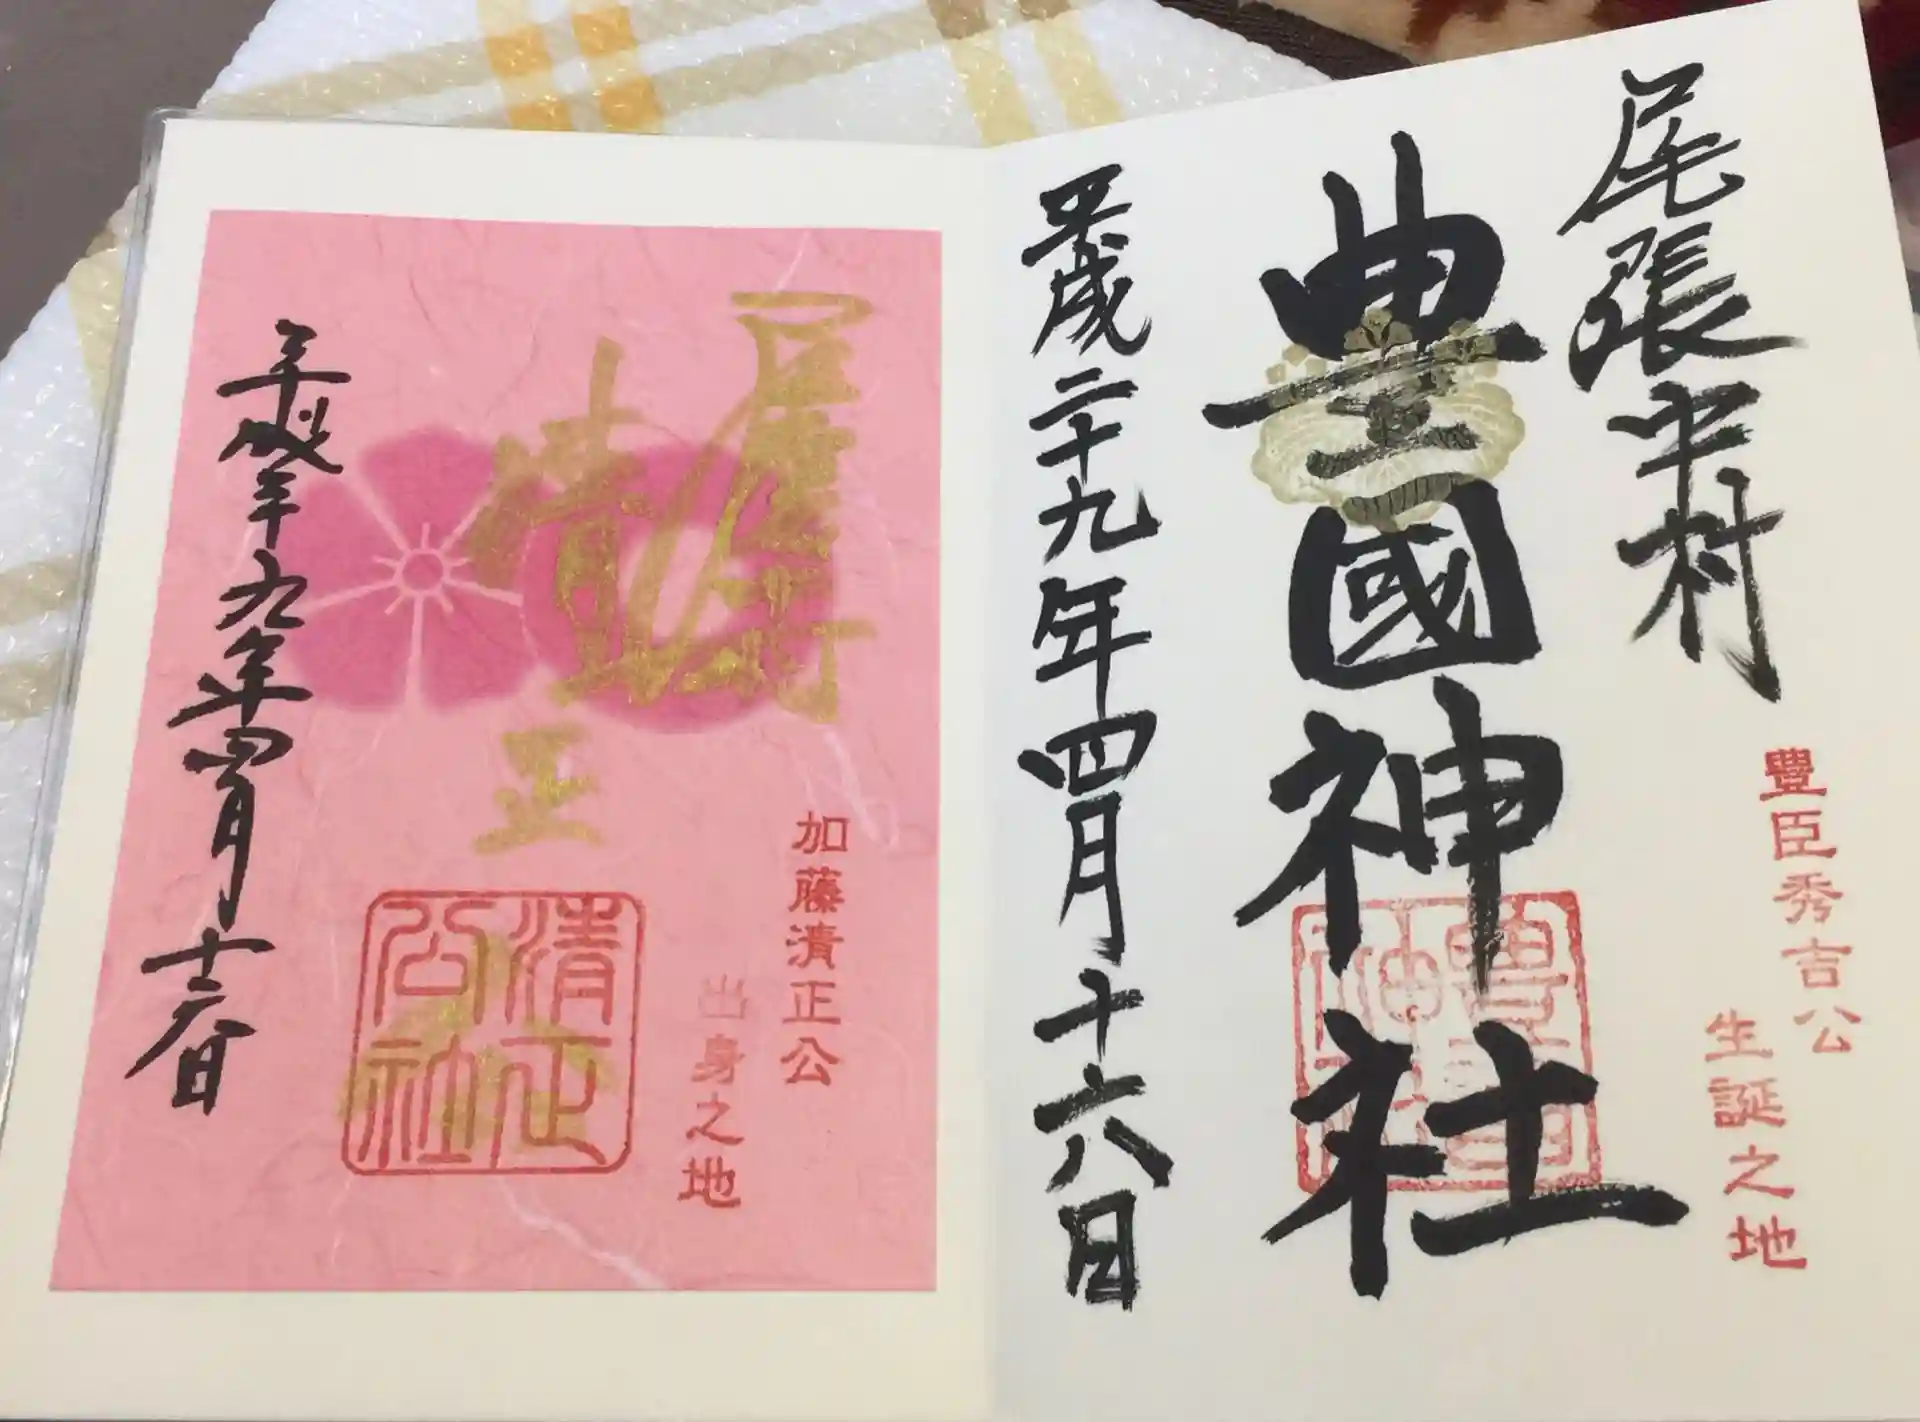 尾張中村
豊臣秀吉公
生誕之地
豊國神社
平成二十九年四月十六日
加藤清正公
出身之地
清正
清正
公社
平成二十九年四月十六日